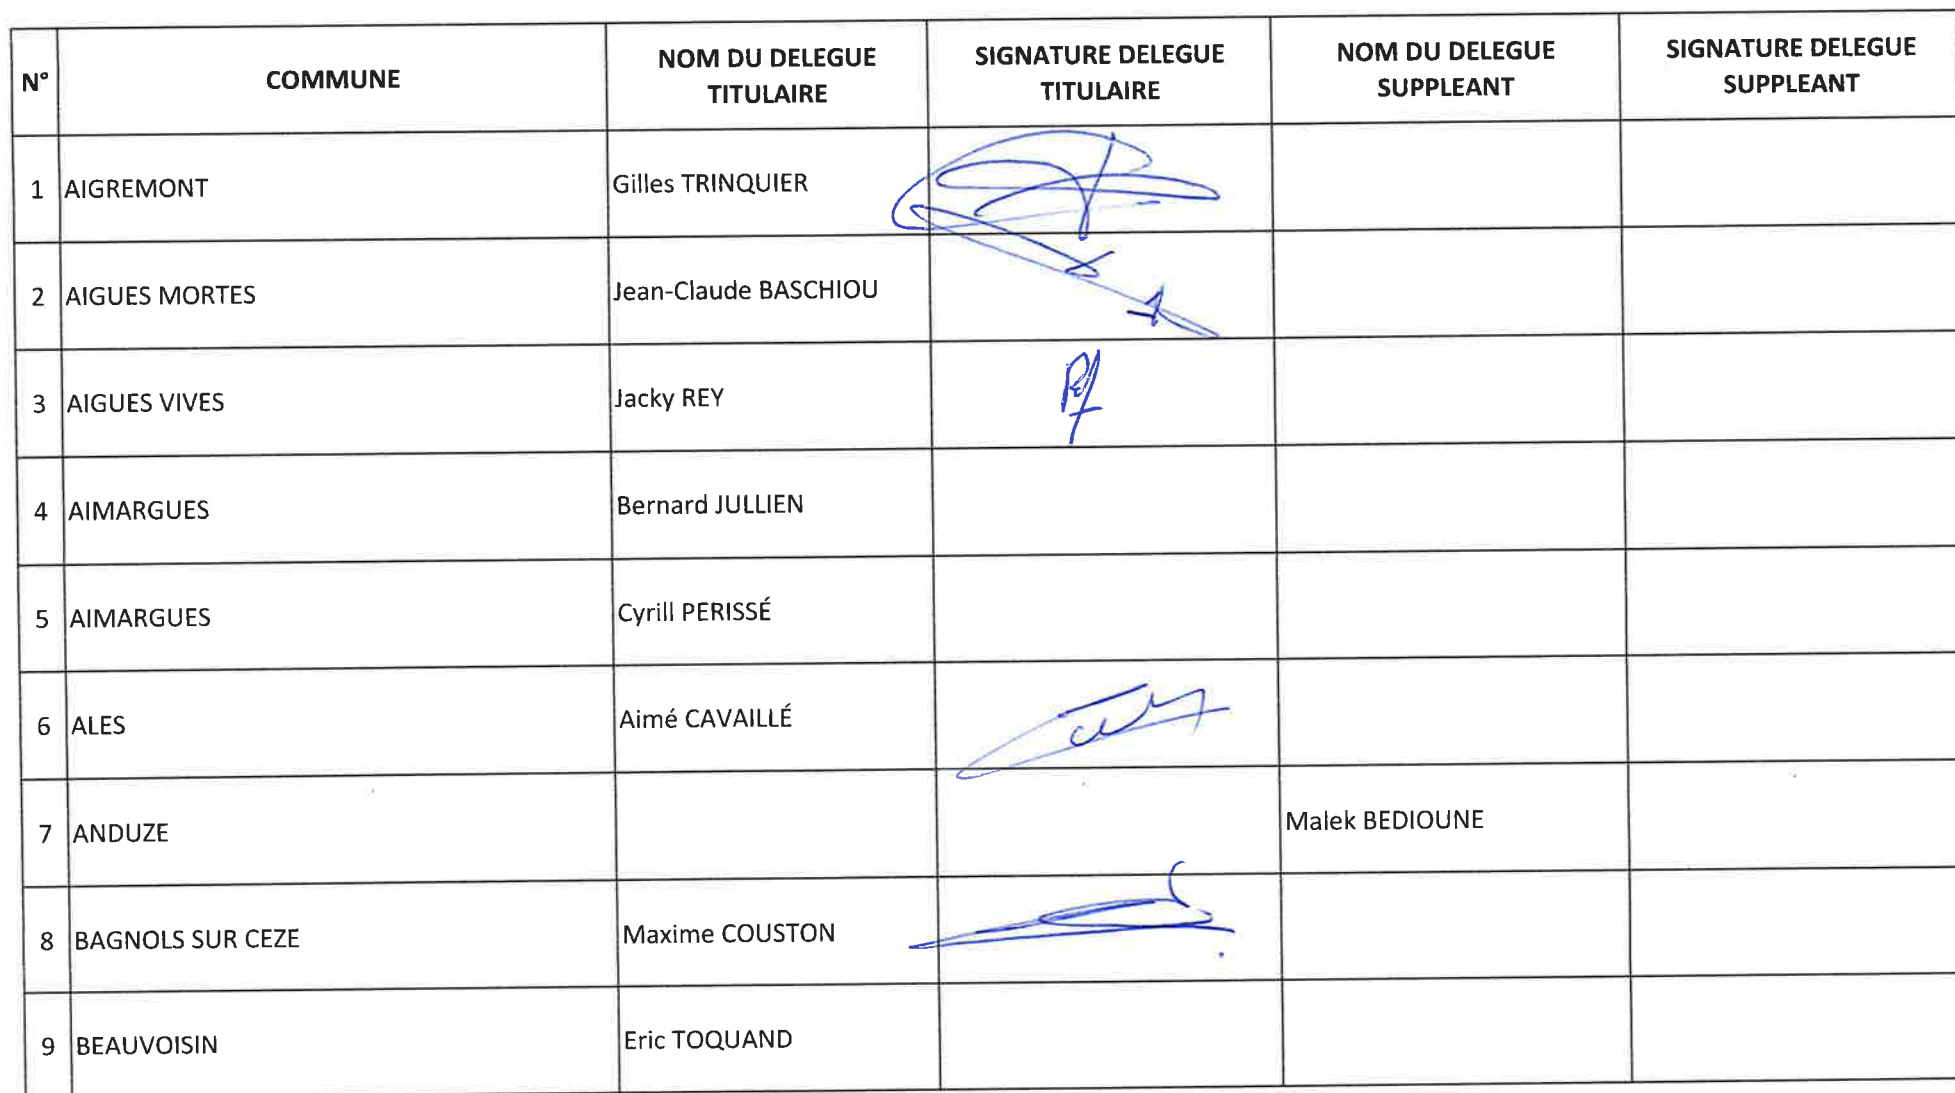 N° COMMUNE NOM DU DELEGUE TITULAIRE SIGNATURE DELEGUE TITULAIRE NOM DU DELEGUE SUPPLEANT SIGNATURE DELEGUE SUPPLEANT
1 AIGREMONT Gilles TRINQUIER
2 AIGUES MORTES Jean-Claude BASCHIOU
3 AIGUES VIVES Jacky REY
4 AIMARGUES Bernard JULLIEN
5 AIMARGUES Cyrill PERISSÉ
6 ALES Aimé CAVAILLÉ
7 ANDUZE Malek BEDIOUNE
8 BAGNOLS SUR CEZE Maxime COUSTON
9 BEAUVOISIN Eric TOQUAND